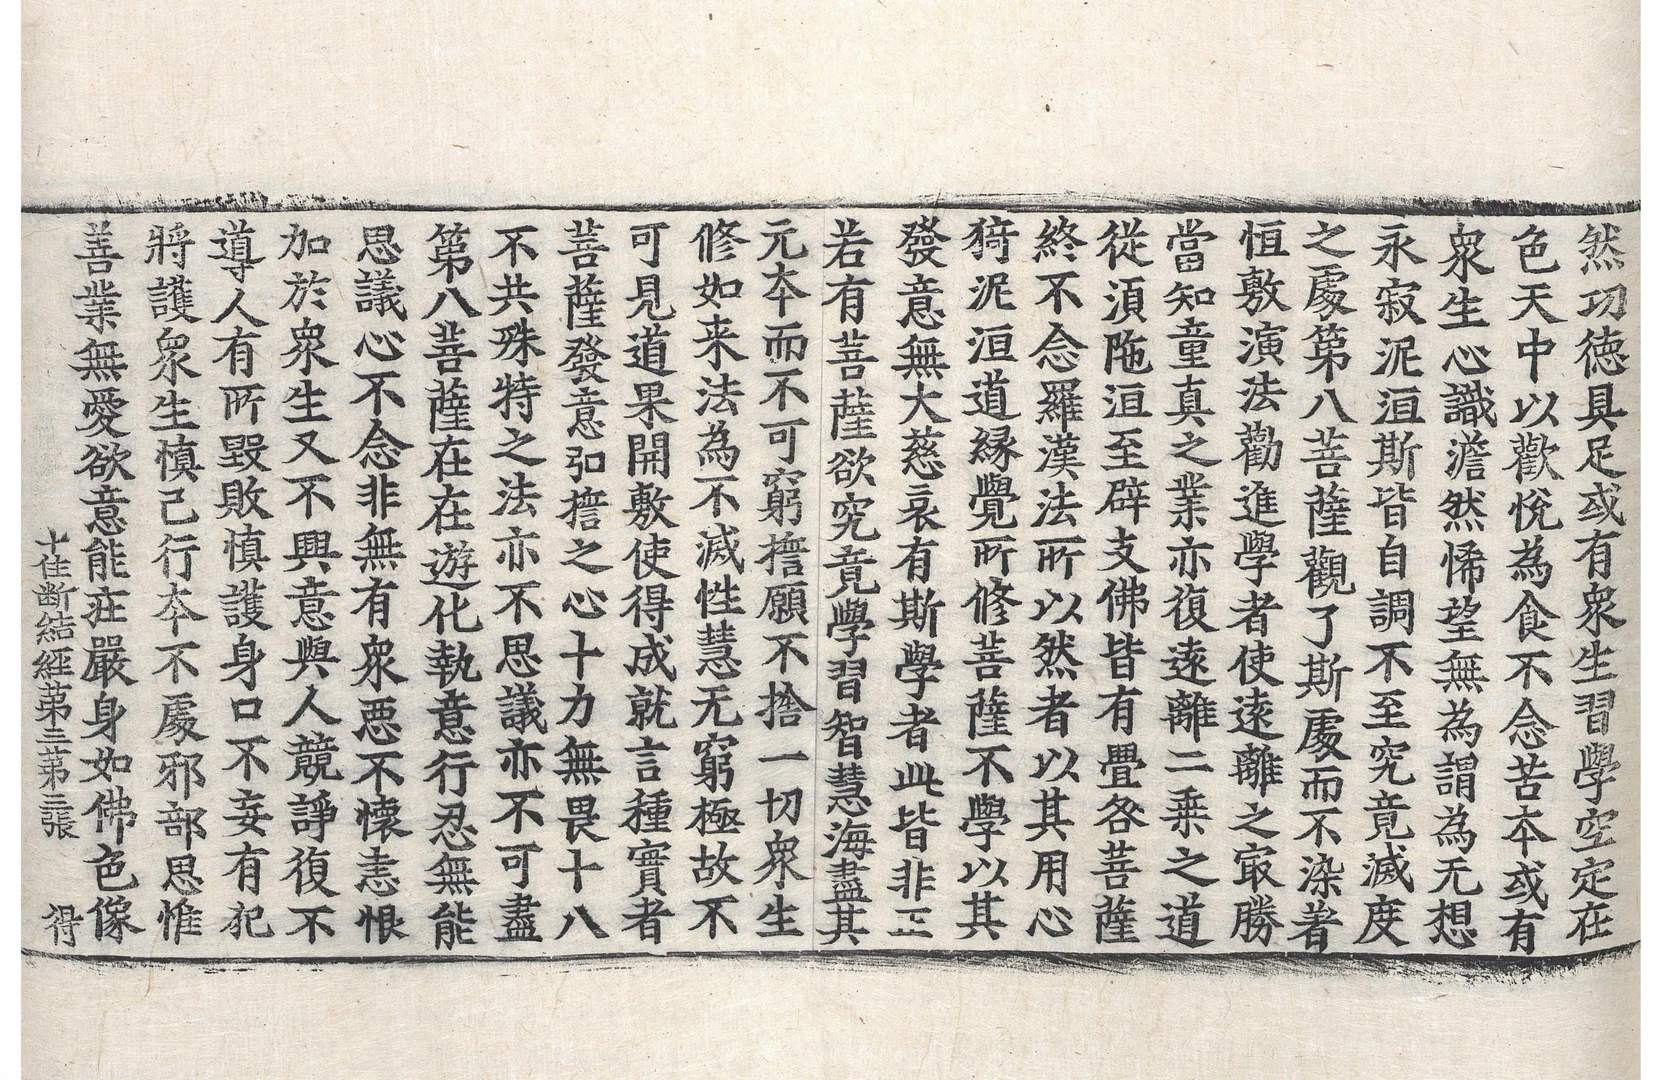 然功德具足或有衆生習學空定在
色天中以歡悅為食不念苦夲或有
衆生心識澹然悕望無為謂為无想
永寂泥洹斯皆自調不至究竟滅度
之處第八菩薩觀了斯處而不染著
恒敷演法勸進學者使遠離之㝡勝
當知童真之業亦復遠離二乘之道
從湏陁洹至辟支佛皆有疊各菩薩
終不念羅漢法所以然者以其用心
猗泥洹道緣覺所修菩薩不學以其
發意無大慈哀有斯學者此皆非正
若有菩薩欲究竟學習智慧海盡其
元夲而不可窮擔願不捨一切衆生
修如来法為不滅性慧无窮極故不
可見道果開敷使得成就言種實者
菩薩發意弘擔之心十力無畏十八
不共殊特之法亦不思議亦不可盡
第八菩薩在在遊化執意行忍無能
思議心不念非無有衆惡不懷恚恨
加於衆生又不興意與人競諍復不
導人有所毀敗慎護身口不妄有犯
將護衆生慎己行夲不處邪部思惟
善業無愛欲意能莊嚴身如佛色像
十住斷結經第三第三張　得